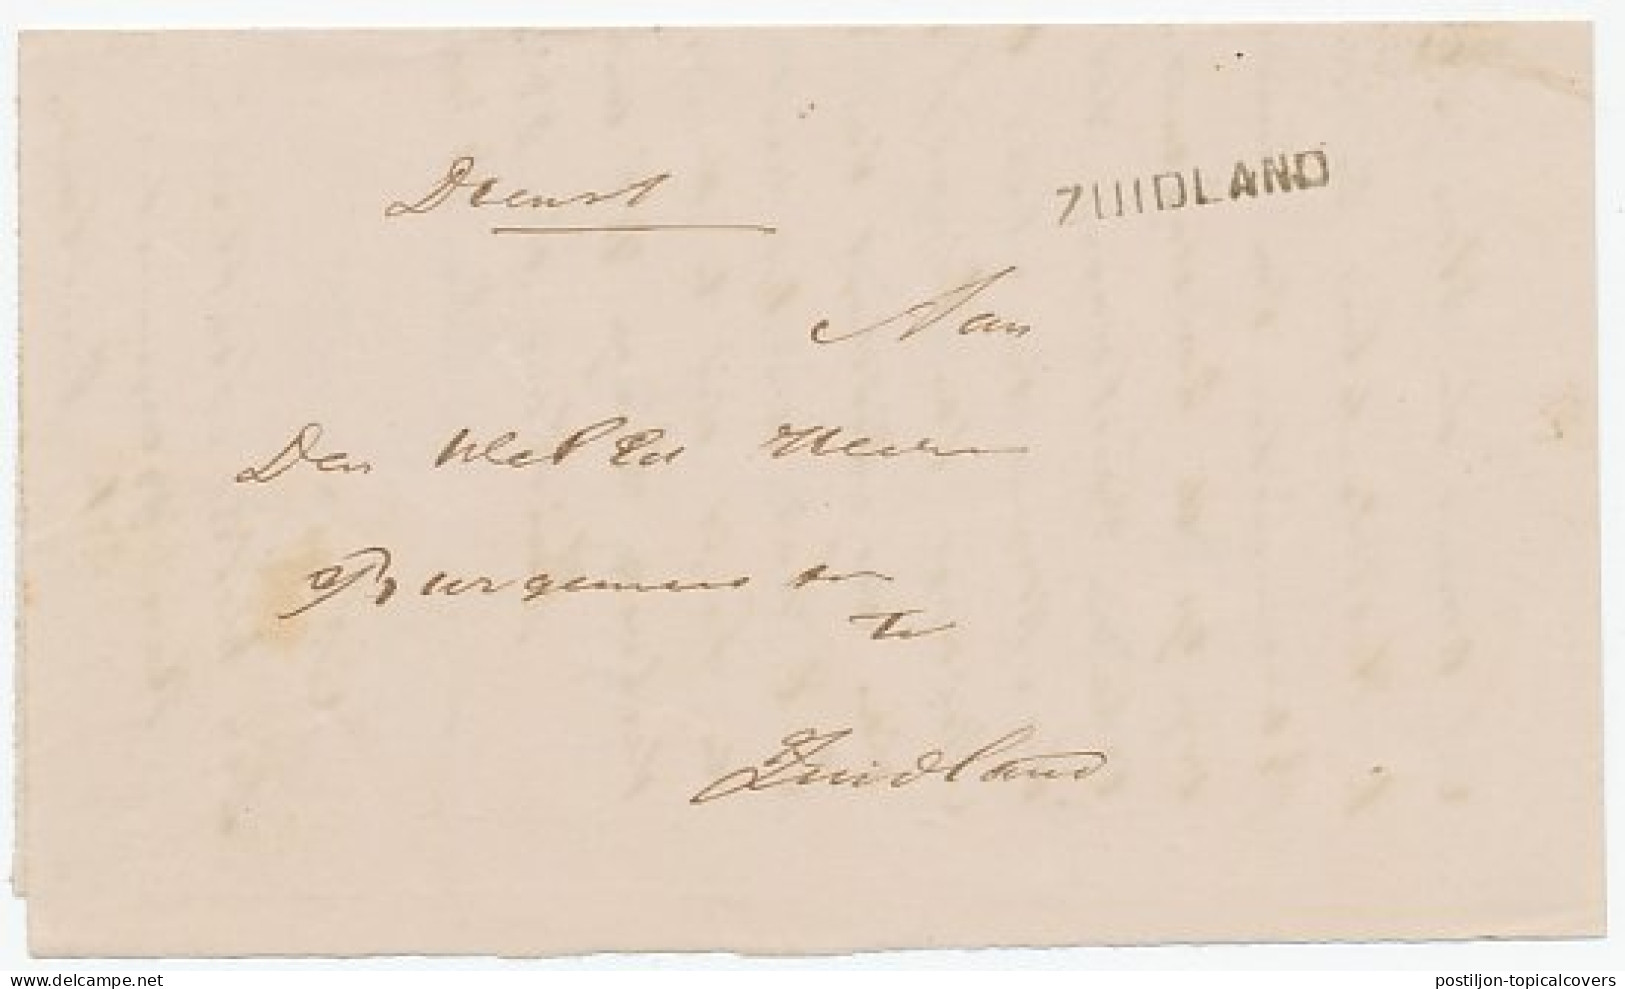 Dienst
ZUIDLAND
Aan
Den WelEd Heer
Burgemeester
te
Zuidland
delcampe.net
postiljon-topicalcovers